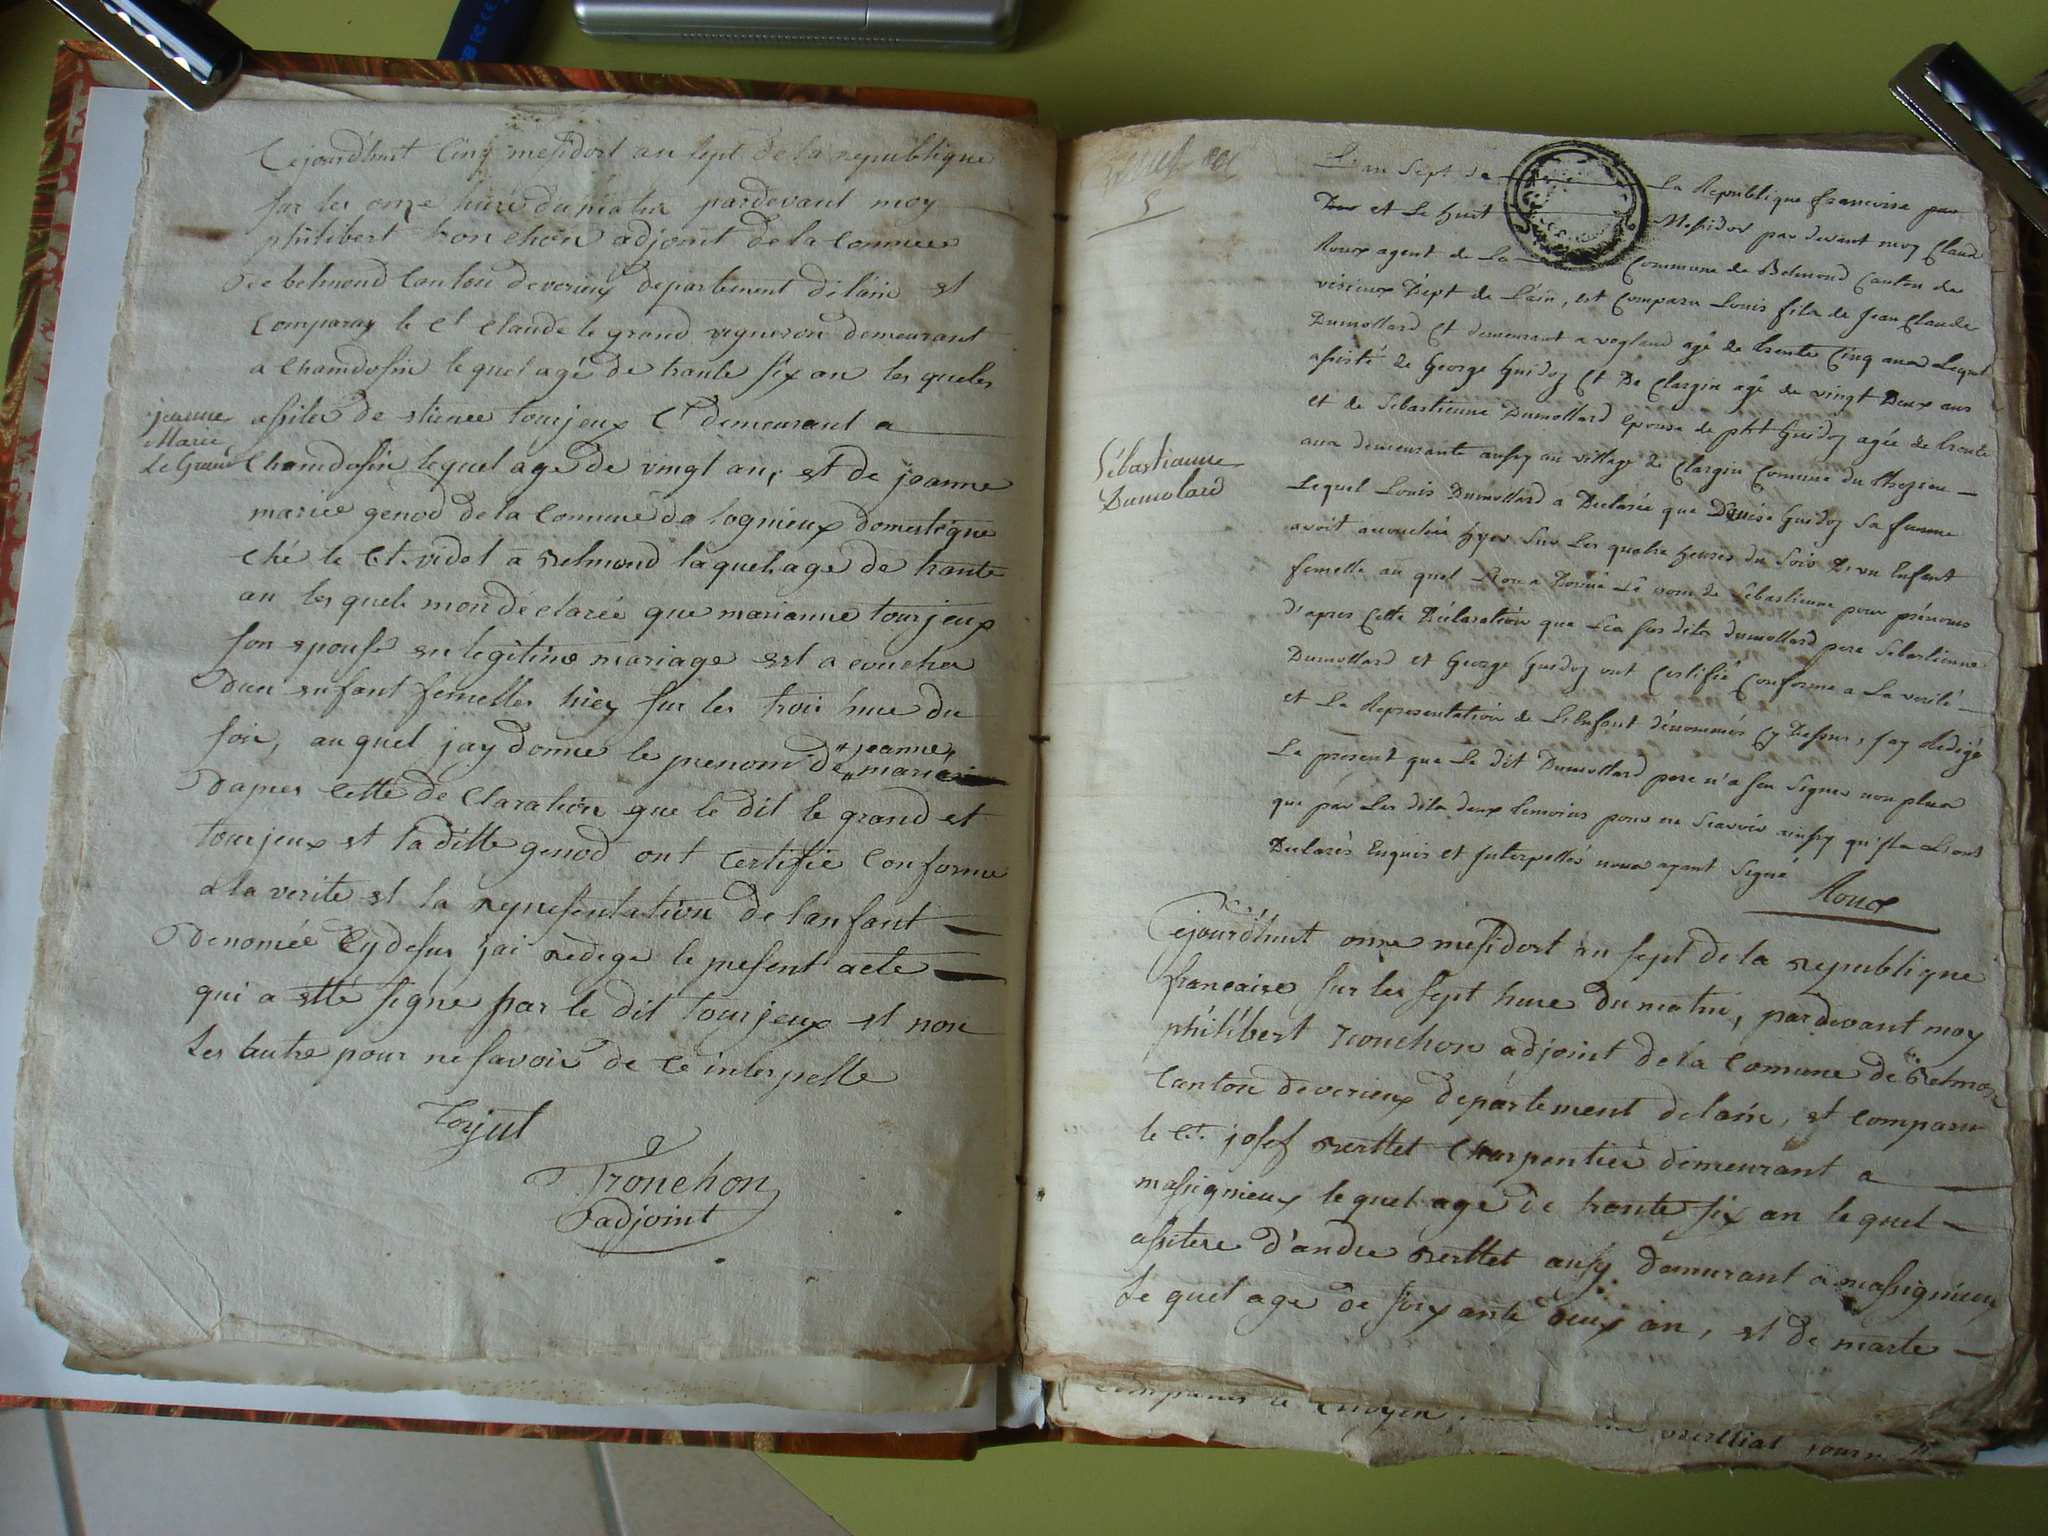 Cejourdhuit Cinq messidort an sept de la republique
sur les onze hure du matin pardevant moy
philibert tronchon adjoint de la Comune
de belmond Canton de verieux departement de lain est
Comparuy le Ct Claude le grand vigneron demeurant
a Chamdosin le quel agé de trante six an les queles
assiter de stienee tourjeux Ct demeurant a
jeanne
Marie
Le Grand
Chamdosin lequel age de vingt an, et de jeanne
mariee genod de la Comune de lognieux domestique
Ché le Ct. videt a Belmond laquel age de trante
an les quels mon déclarée que marianne tourjeux
son epouse en legitime mariage est a coucher
dun enfant femelles hiey sur les trois hure du
soir, au quel jay donne le prenom de jeanne
marie
dapres cette de Claration que le dit le grand et
tourjeux et ladille genod ont certifie Conforme
a la verite et la representation de lanfant
denomée Cydesus jai redige le present acte
qui a etté signe par le dit tourjeux et non
les autre pour ne savoir de ce interpelle
Torjut
Tronchon
adjoint
5
L'an Sept de La Republique francoise
et Le huit Messidor par devant moy Claude
Roux agent de La Commune de Belmond Canton de
virieux Dépt de L'ain, est Comparu Louis fils de Jean Claude
Dumollard Et demeurant a vogland agé de trente Cinq ans Lequel
assisté de George Guidoz Et De Clargin agé de vingt Deux ans
et de Sébastienne Dumollard Epouse de pht Guidoz agée de trente
ans demeurante aussy au village de Clargin Commune du
Sébastianne
Dumolard
Lequel Louis Dumollard a Declarée que Denise Guidoz Sa femme
avoit accouchée hyer Sur Les quatre heures du Soir D'un Enfant
femelle au quel Lon a Donné Le nom de Sébastienne pour prénoms
D'apres Cette Déclaration que Les sus dits dumollard pere Sébastienne
Dumollard et George Guidoz ont Certifié Conforme a La verité
et La Représentation de L'Enfant dénommés Cy Dessus, J'ay Redigé
Le present que Le dit Dumollard pere n'a seu Signer non plus
que par Les dits deux temoins pour ne Scavoir ainsy qu'ils L'ont
Declarés Enquis et Interpellés nous ayant Signé
Roux
Cejourdhuit onze messidort an sept de la republique
francaise sur les sept hure du matin, pardevant moy
philibert tronchon adjoint de la Comune de Belmon
Canton de verieux departement de lain, et comparu
le Ct. josef Berttet Charpentier demeurant a
massignieux lequel age de trante six an lequel
assitere d'andre Berttet ausy demurant a massignieux
Le quel age de soixante deux an, et de marte
Citoyen